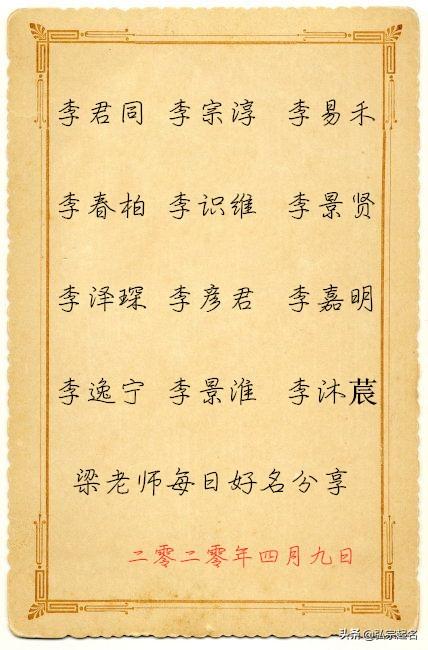 李君同 李宗淳 李易禾
李春柏 李识维 李景贤
李泽琛 李彦君 李嘉明
李逸宁 李景淮 李沐莀
梁老师每日好名分享
二零二零年四月九日
头条 @弘宗起名